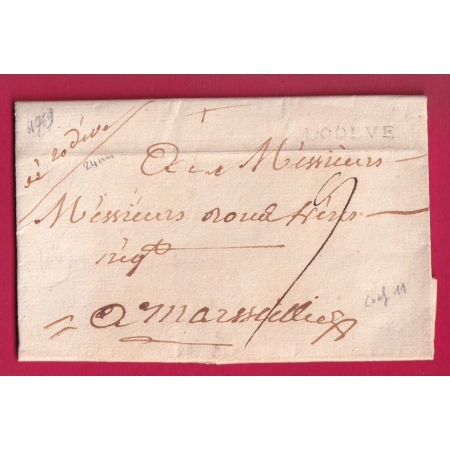 1769
de Lodève
24mm
LODEVE
A Messieurs
Messieurs frères
negt
a Marsseillie
9
coef 11